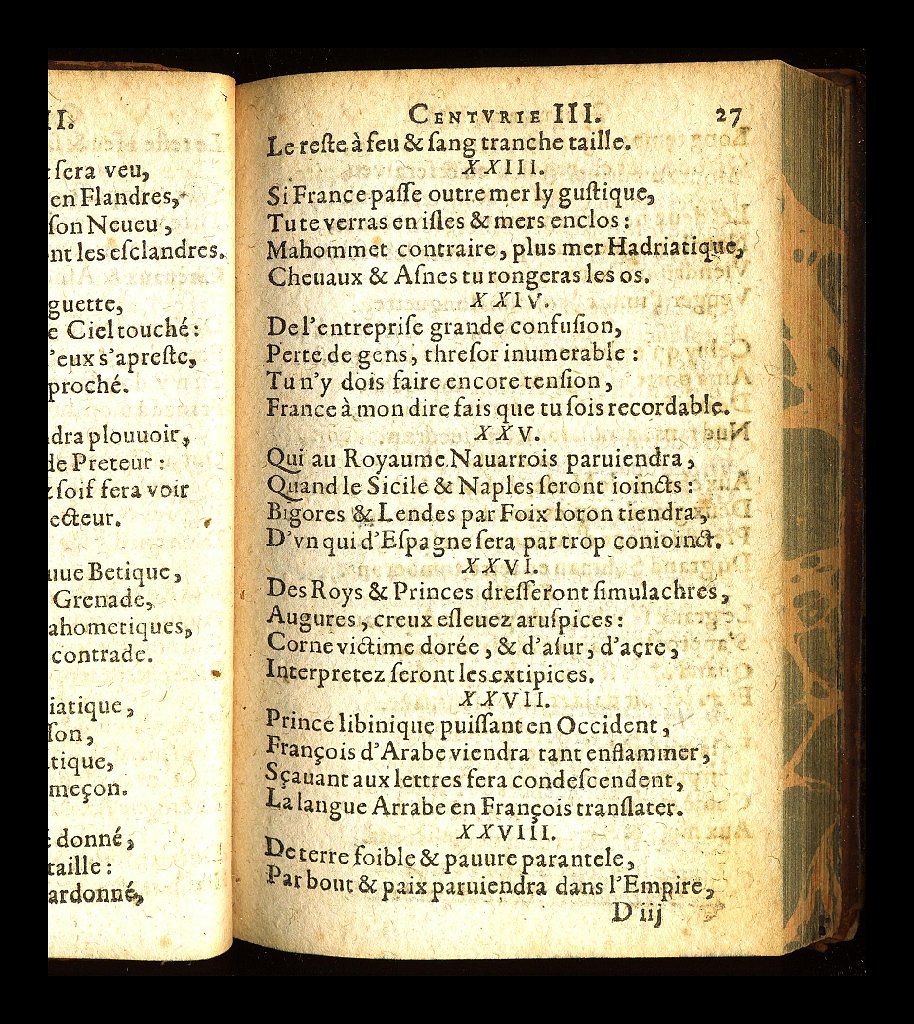 II.
sera veu,
en Flandres,
son Neueu,
nt les esclandres.
guette,
e Ciel touché:
'eux s'apreste,
proché.
dra plouuoir,
de Preteur:
soif fera voir
ecteur.
uue Betique,
Grenade,
ahometiques,
contrade.
iatique,
son,
tique,
meçon.
donné,
taille:
ardonné,
CENTVRIE III. 27
Le reſte à feu & ſang tranche taille.
XXIII.
Si France paſſe outre mer ly guſtique,
Tu te verras en iſles & mers enclos:
Mahommet contraire, plus mer Hadriatique,
Cheuaux & Aſnes tu rongeras les os.
XXIV.
De l'entrepriſe grande confuſion,
Perte de gens, threſor inumerable:
Tu n'y dois faire encore tenſion,
France à mon dire fais que tu ſois recordable.
XXV.
Qui au Royaume Nauarrois paruiendra,
Quand le Sicile & Naples ſeront ioincts:
Bigores & Lendes par Foix loron tiendra,
D'vn qui d'Eſpagne ſera par trop conioinct.
XXVI.
Des Roys & Princes dreſſeront ſimulachres,
Augures, creux eſleuez aruſpices:
Corne victime dorée, & d'aſur, d'acre,
Interpretez ſeront les extipices.
XXVII.
Prince libinique puiſſant en Occident,
François d'Arabe viendra tant enflammer,
Sçauant aux lettres fera condeſcendent,
La langue Arrabe en François tranſlater.
XXVIII.
De terre foible & pauure parantele,
Par bout & paix paruiendra dans l'Empire,
D iij